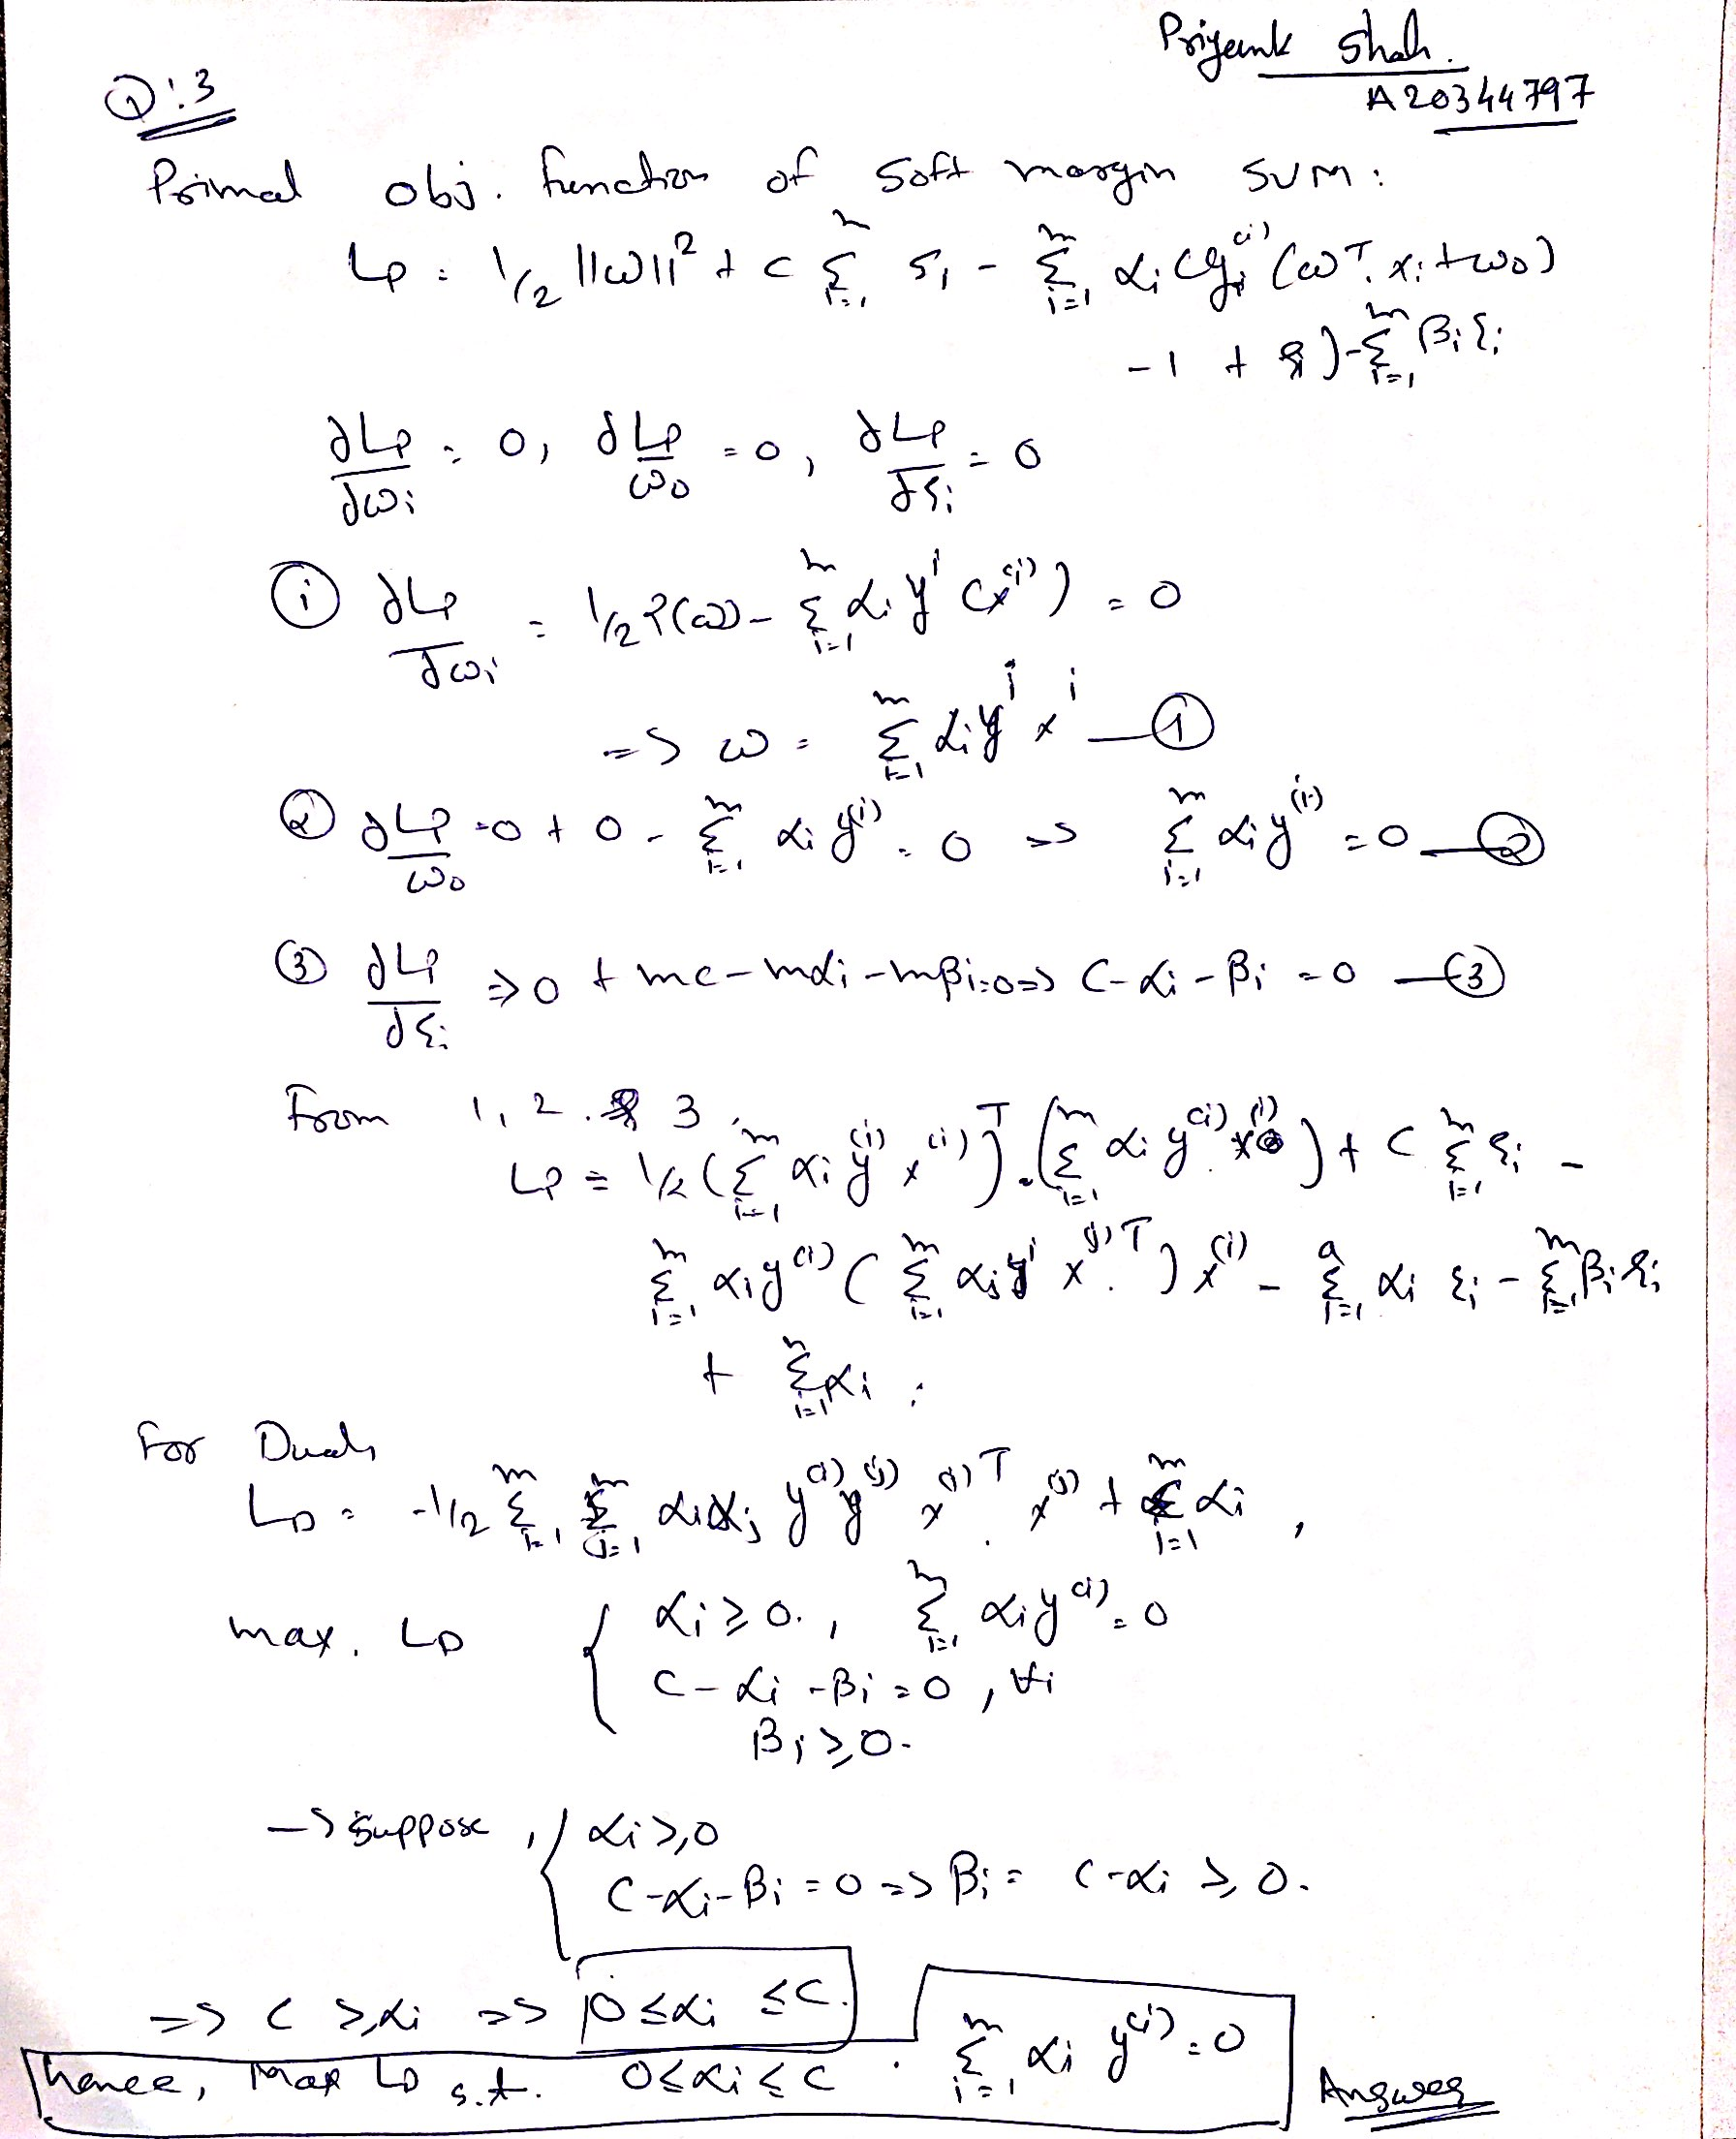 Priyank Shah.
A20344797
Q:3
Primal obj. function of soft margin SVM:
Lp = 1/2 ||ω||² + C Σ_{i=1}^{m} ξ_i - Σ_{i=1}^{m} α_i (y_i^{(i)} (ω^T. x_i + ω_0)
- 1 + ξ_i) - Σ_{i=1}^{m} β_i ξ_i
∂Lp/∂ω_i = 0, ∂Lp/ω_0 = 0, ∂Lp/∂ξ_i = 0
① ∂Lp/∂ω_i = 1/2 2(ω) - Σ_{i=1}^{m} α_i y^i (x^{(i)}) = 0
=> ω = Σ_{i=1}^{m} α_i y^i x^i — ①
② ∂Lp/ω_0 = 0 + 0 - Σ_{i=1}^{m} α_i y^{(i)} = 0 => Σ_{i=1}^{m} α_i y^{(i)} = 0 — ②
③ ∂Lp/∂ξ_i => 0 + mc - mα_i - mβ_i = 0 => C - α_i - β_i = 0 — ③
From 1, 2 . & 3
Lp = 1/2 (Σ_{i=1}^{m} α_i y^{(i)} x^{(i)})^T . (Σ_{i=1}^{m} α_i y^{(i)} x^{(i)}) + C Σ_{i=1}^{m} ξ_i -
Σ_{i=1}^{m} α_i y^{(i)} (Σ_{i=1}^{m} α_i y^i x^{(i)T}) x^{(i)} - Σ_{i=1}^{m} α_i ξ_i - Σ_{i=1}^{m} β_i ξ_i
+ Σ_{i=1}^{m} α_i ;
For Dual,
L_D = -1/2 Σ_{i=1}^{m} Σ_{j=1}^{m} α_i α_j y^{(i)} y^{(j)} x^{(i)T} . x^{(j)} + Σ_{i=1}^{m} α_i ,
max. L_D { α_i ≥ 0. , Σ_{i=1}^{m} α_i y^{(i)} = 0
C - α_i - β_i = 0 , ∀i
β_i ≥ 0.
-> Suppose , { α_i ≥ 0
C - α_i - β_i = 0 => β_i = C - α_i ≥ 0.
=> C ≥ α_i => 0 ≤ α_i ≤ C.
hence, Max L_D s.t. 0 ≤ α_i ≤ C . Σ_{i=1}^{m} α_i y^{(i)} = 0
Answer